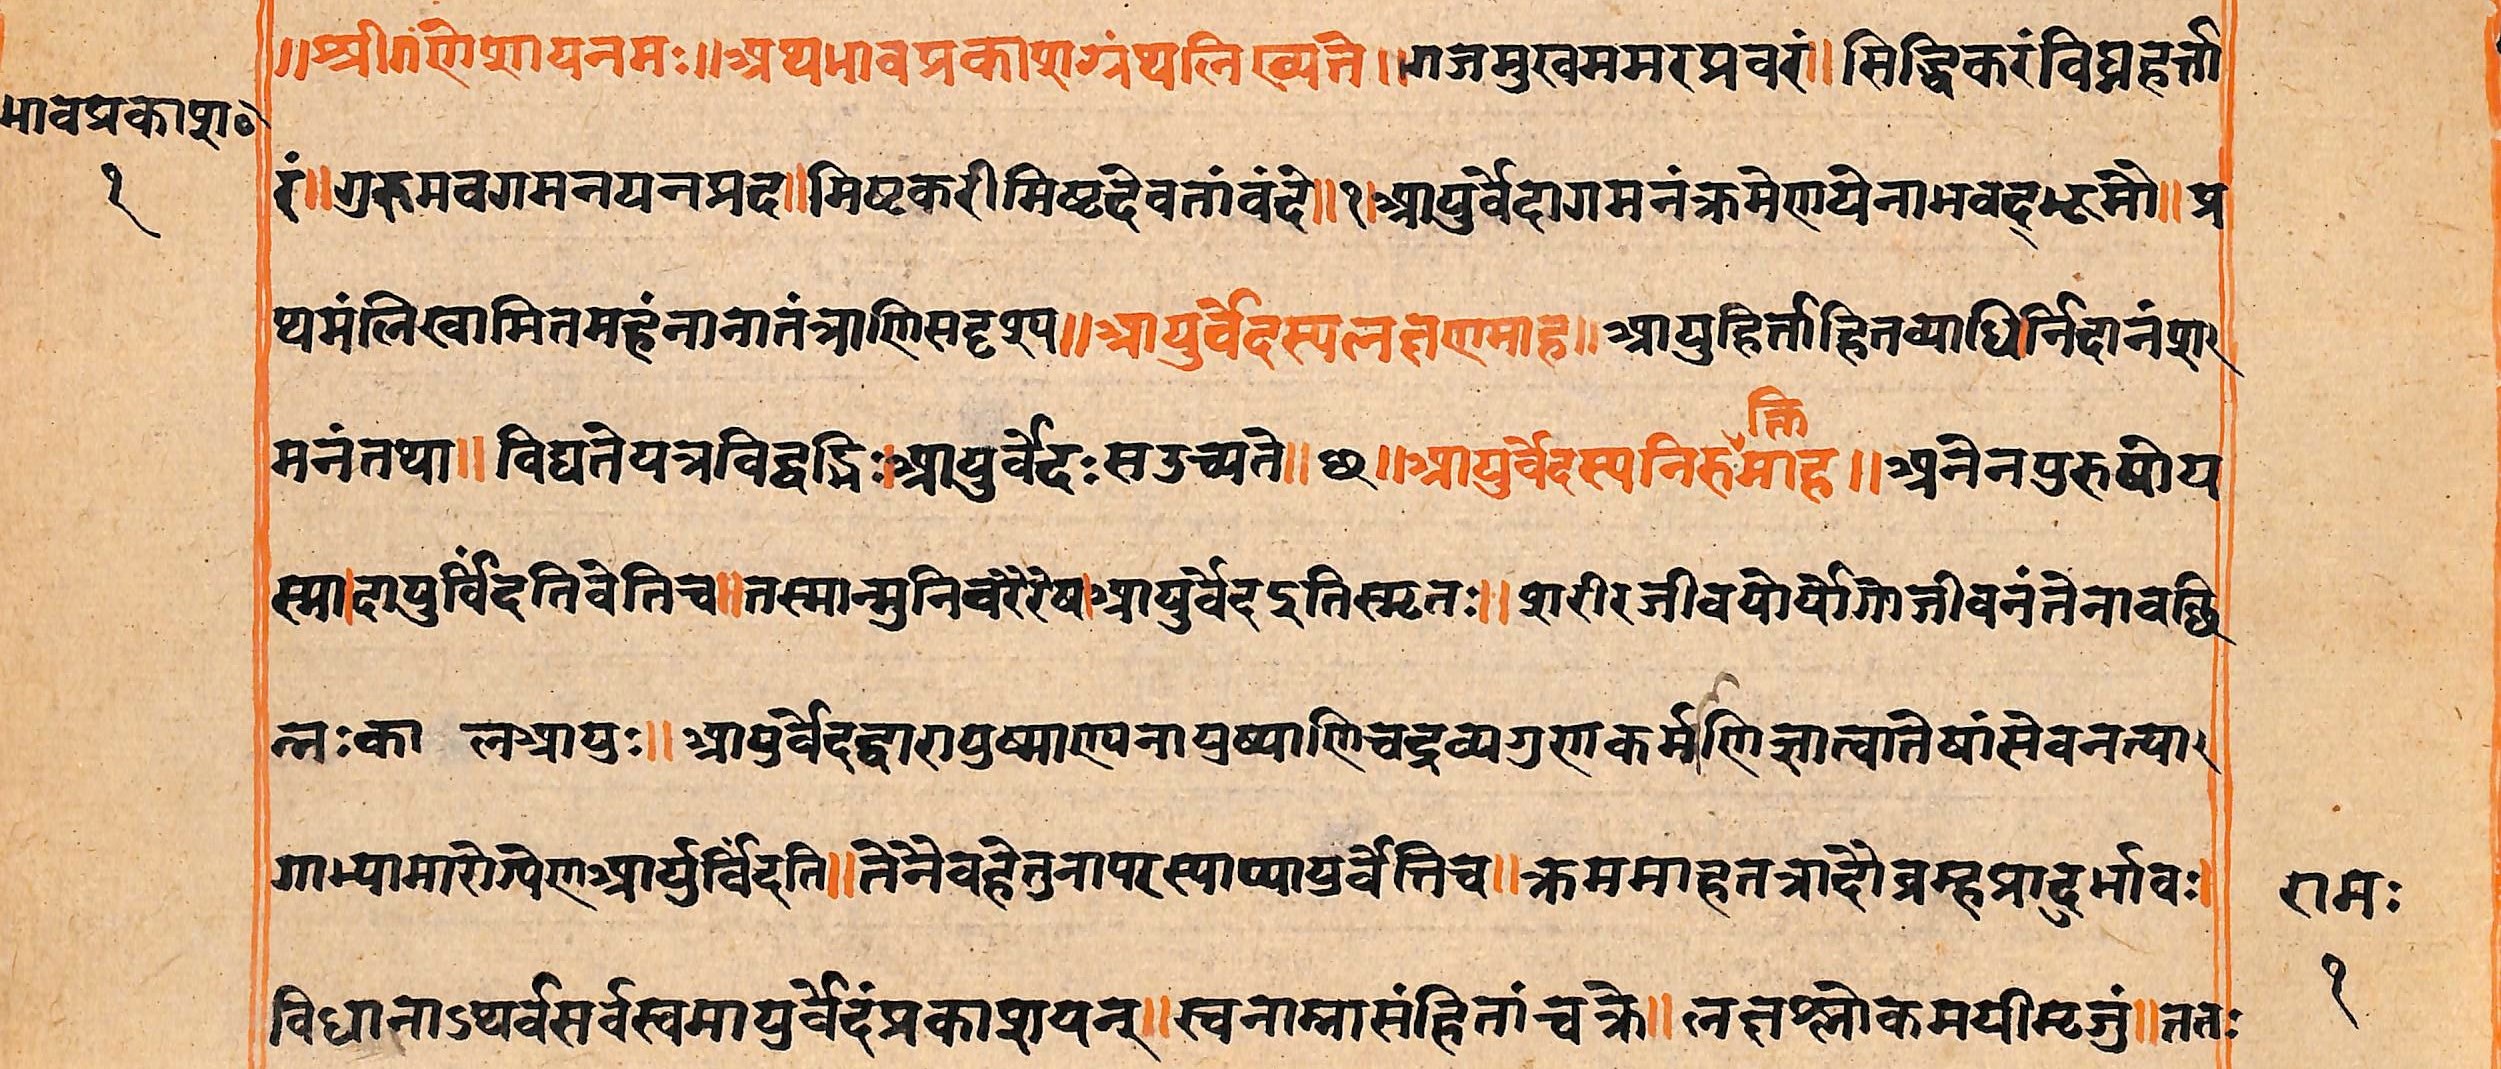 ॥श्रीगंणेशायनमः॥अथभावप्रकाशग्रंथलिख्यते॥गजमुखममरप्रवरं॥सिद्धिकरंविघ्नहर्त्ता
भावप्रकाश॰
१
रं॥गुरुमवगमनयनप्रद॥मिष्टकरीमिष्टदेवतांवंदे॥१॥आयुर्वेदागमनंक्रमेणयेनाभवद्भूमौ॥प्र
थमंलिखामितमहंनानातंत्राणिसदृश्य॥आयुर्वेदस्यलक्षणमाह॥आयुर्हिताहितव्याधिर्निदानंश
मनंतथा॥विद्यतेयत्रविद्वद्भिः।आयुर्वेदःसउच्यते॥छ॥आयुर्वेदस्यनिरुमाह॥अनेनपुरुषोय
क्ति
स्मा।दायुर्विंदतिवेतिच॥तस्मान्मुनिवरैरेष।आयुर्वेदइतिस्मृतः॥शरीरजीवयोर्योगोजीवनंतेनावछि
न्नःका लआयुः॥आयुर्वेदद्वारायुष्माण्यनायुष्याणिचद्रव्यगुणकर्माणिज्ञात्वातेषांसेवनत्या
गाभ्यामारोग्येणआर्युर्विंदति॥तेनैवहेतुनापरस्याप्यायुर्वेत्तिच॥क्रममाहतत्रादौब्रम्हप्रादुर्भावः।
रामः
१
विधानाऽथर्वसर्वस्वमायुर्वेदंप्रकाशयन्॥स्वनाम्नासंहितांचक्रे॥लक्षश्लोकमयीमृजुं॥ततः